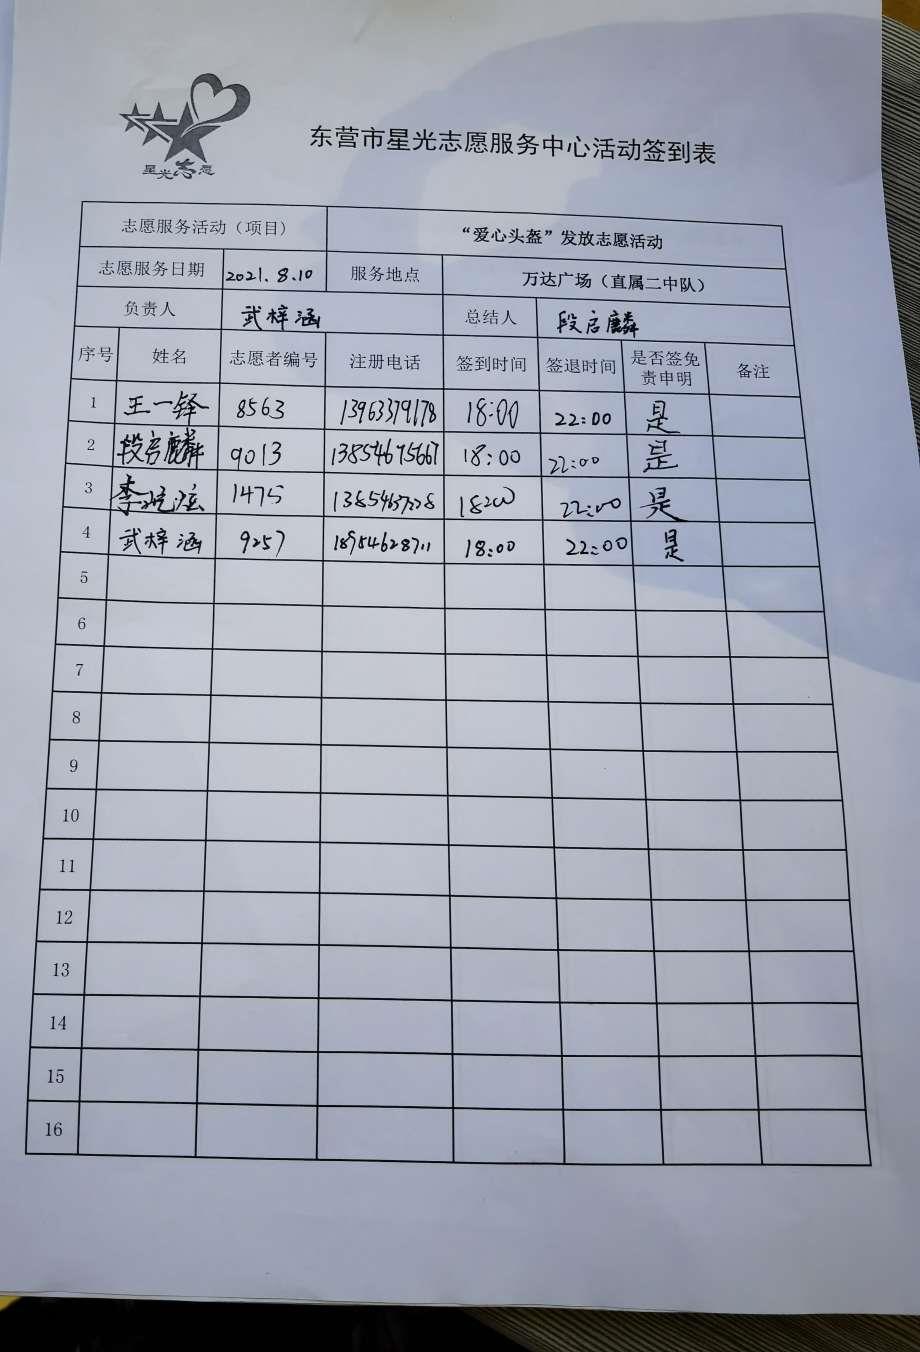 星光志愿
东营市星光志愿服务中心活动签到表
志愿服务活动（项目） “爱心头盔”发放志愿活动
志愿服务日期 2021.8.10 服务地点 万达广场（直属二中队）
负责人 武梓涵 总结人 段启麟
序号 姓名 志愿者编号 注册电话 签到时间 签退时间 是否签免责申明 备注
1 王一铎 8563 13963379178 18:00 22:00 是
2 段启麟 9013 13854675667 18:00 22:00 是
3 1475 13854637228 18:00 22:00 是
4 武梓涵 9257 18954628711 18:00 22:00 是
5
6
7
8
9
10
11
12
13
14
15
16